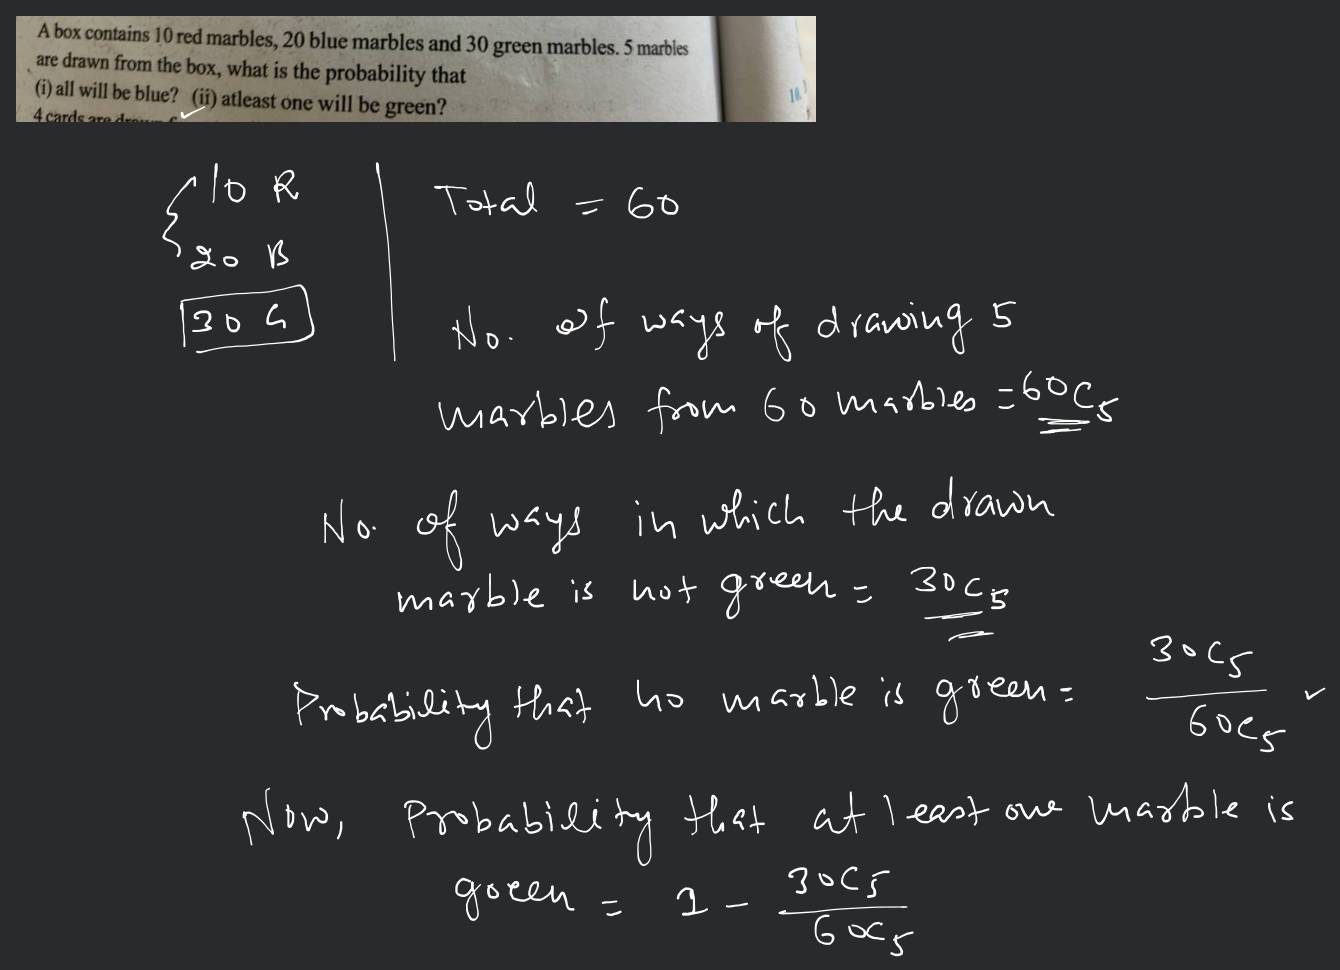 A box contains 10 red marbles, 20 blue marbles and 30 green marbles. 5 marbles
are drawn from the box, what is the probability that
(i) all will be blue? (ii) atleast one will be green?
10.
4 cards are
10 R
20 B
30 G
Total = 60
No. of ways of drawing 5
marbles from 60 marbles = 60C5
No. of ways in which the drawn
marble is not green = 30C5
Probability that no marble is green = 30C5 / 60C5 ✓
Now, Probability that at least one marble is
green = 1 - 30C5 / 60C5